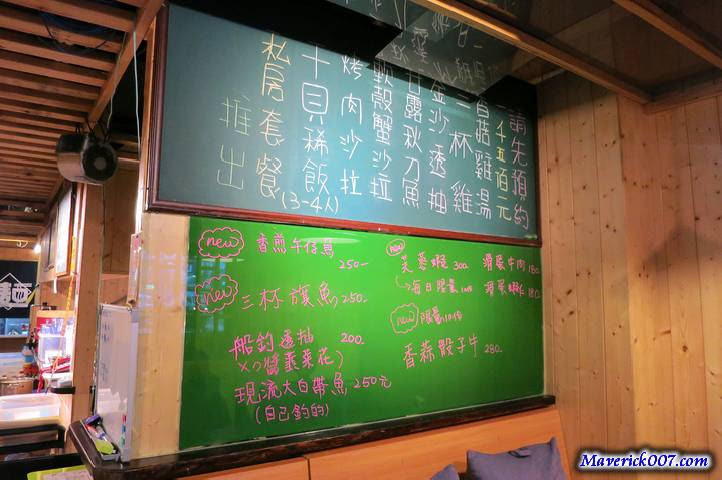 推出
私房套餐
(3-4人)
干貝稀飯
烤肉沙拉
軟殼蟹沙拉
甘露秋刀魚
金沙透抽
三杯雞
菇雞湯
千五佰元
請先預約
new 香煎午仔魚
250-
new 三杯旗魚 250-
船釣透抽 200
XO醬韭菜花)
現流大白帶魚 250元
(自己釣的)
new
芙蓉蝦 300 滑蛋牛肉 180
每日限量 滑蛋蝦仁 180
new 限量10份
香蒜骰子牛 280
Maverick007.com